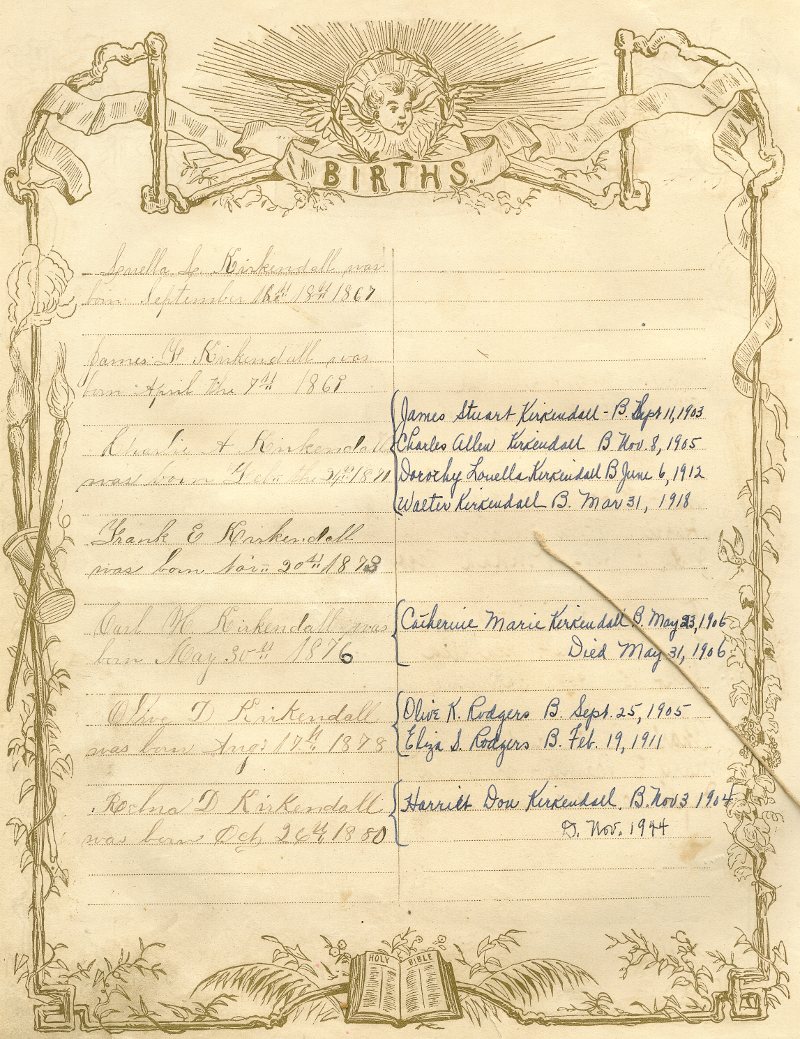 BIRTHS.
Louella L Kirkendall was
born September 18th 1867
James F Kirkendall was
born April the 7th 1869
Charlie A Kirkendall
was born the
Frank E Kirkendall
was born Nov 20th 1873
Carl H Kirkendall was
born May 30th 1876
Olive D Kirkendall
was born Aug: 17th 1878
D Kirkendall
was born Oct 26th 1880
James Stuart Kirkendall - B. Sept 11, 1903
Charles Allen Kirkendall B Nov. 8, 1905
Dorothy Louella Kirkendall B June 6, 1912
Walter Kirkendall B. Mar 31, 1918
Catherine Marie Kirkendall B. May 23, 1906
Died May 31, 1906
Olive K. Rodgers B. Sept. 25, 1905
Eliza S. Rodgers B. Feb. 19, 1911
Harriet Dou Kirkendall. B. Nov 3 1904
D. Nov. 1944
HOLY BIBLE